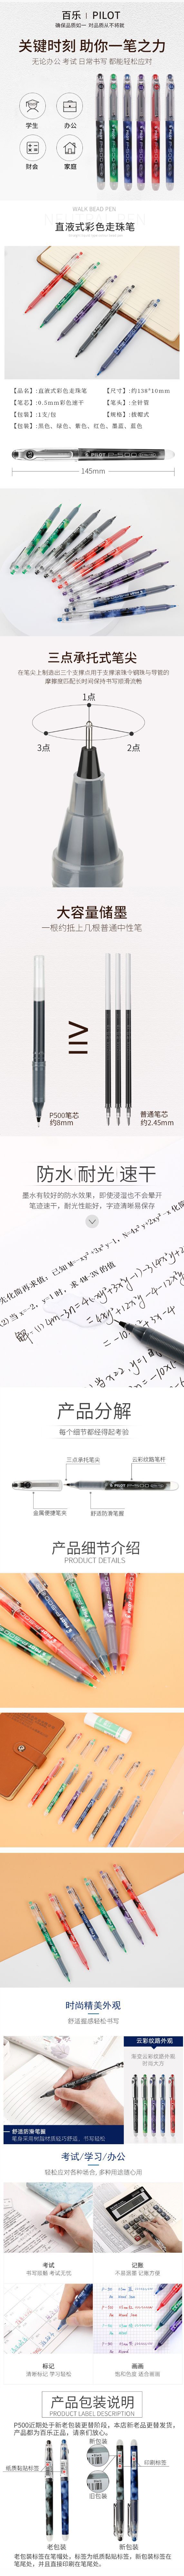 百乐 | PILOT
确保品质如一 对品质从不将就
关键时刻 助你一笔之力
无论办公 考试 日常书写 都能轻松应对
学生
办公
财会
家庭
WALK BEAD PEN
直液式彩色走珠笔
【品名】:直液式彩色走珠笔
【尺寸】:约138*10mm
【笔芯】:0.5mm彩色速干
【笔头】:全针管
【包装】:1支/包
【规格】:拔帽式
【包装】:黑色、绿色、紫色、红色、墨蓝、蓝色
145mm
三点承托式笔尖
在笔尖上制造出三个支撑点用于支撑滚珠令钢珠与导管的
摩擦度匹配长时间保持书写顺滑流畅
1点
3点
2点
大容量储墨
一根约抵上几根普通中性笔
P500笔芯
约8mm
普通笔芯
约2.45mm
防水 耐光 速干
墨水有较好的防水效果，即使浸湿也不会晕开
笔迹速干，耐光性能好，字迹清晰易保存
产品分解
每个细节都经得起考验
三点承托笔尖
云彩纹路笔杆
金属便捷笔夹
舒适防滑笔握
产品细节介绍
PRODUCT DETAILS
时尚精美外观
舒适握感轻松书写
云彩纹路外观
渐变云彩纹路外观
时尚大方
舒适防滑笔握
笔身采用树脂材质轻巧舒适，书写轻松
考试/学习/办公
轻松应对各种场合, 多种用途随心用
考试
书写顺畅 考试无忧
记账
不易洇墨 记账方便
标记
清晰标记 学习轻松
画画
饱和色度 适合画画
产品包装说明
PRODUCT LABEL DESCRIPTION
P500近期处于新老包装更替阶段，本店新老品更替发货，
产品都为百乐正品，请亲们放心。
新包装
纸质黏贴标签
印刷标签
旧包装
老包装
新包装
老包装标签在笔端处，标签为纸质黏贴标签，新包装标签在
笔尾处，并且直接印刷在笔尾处。